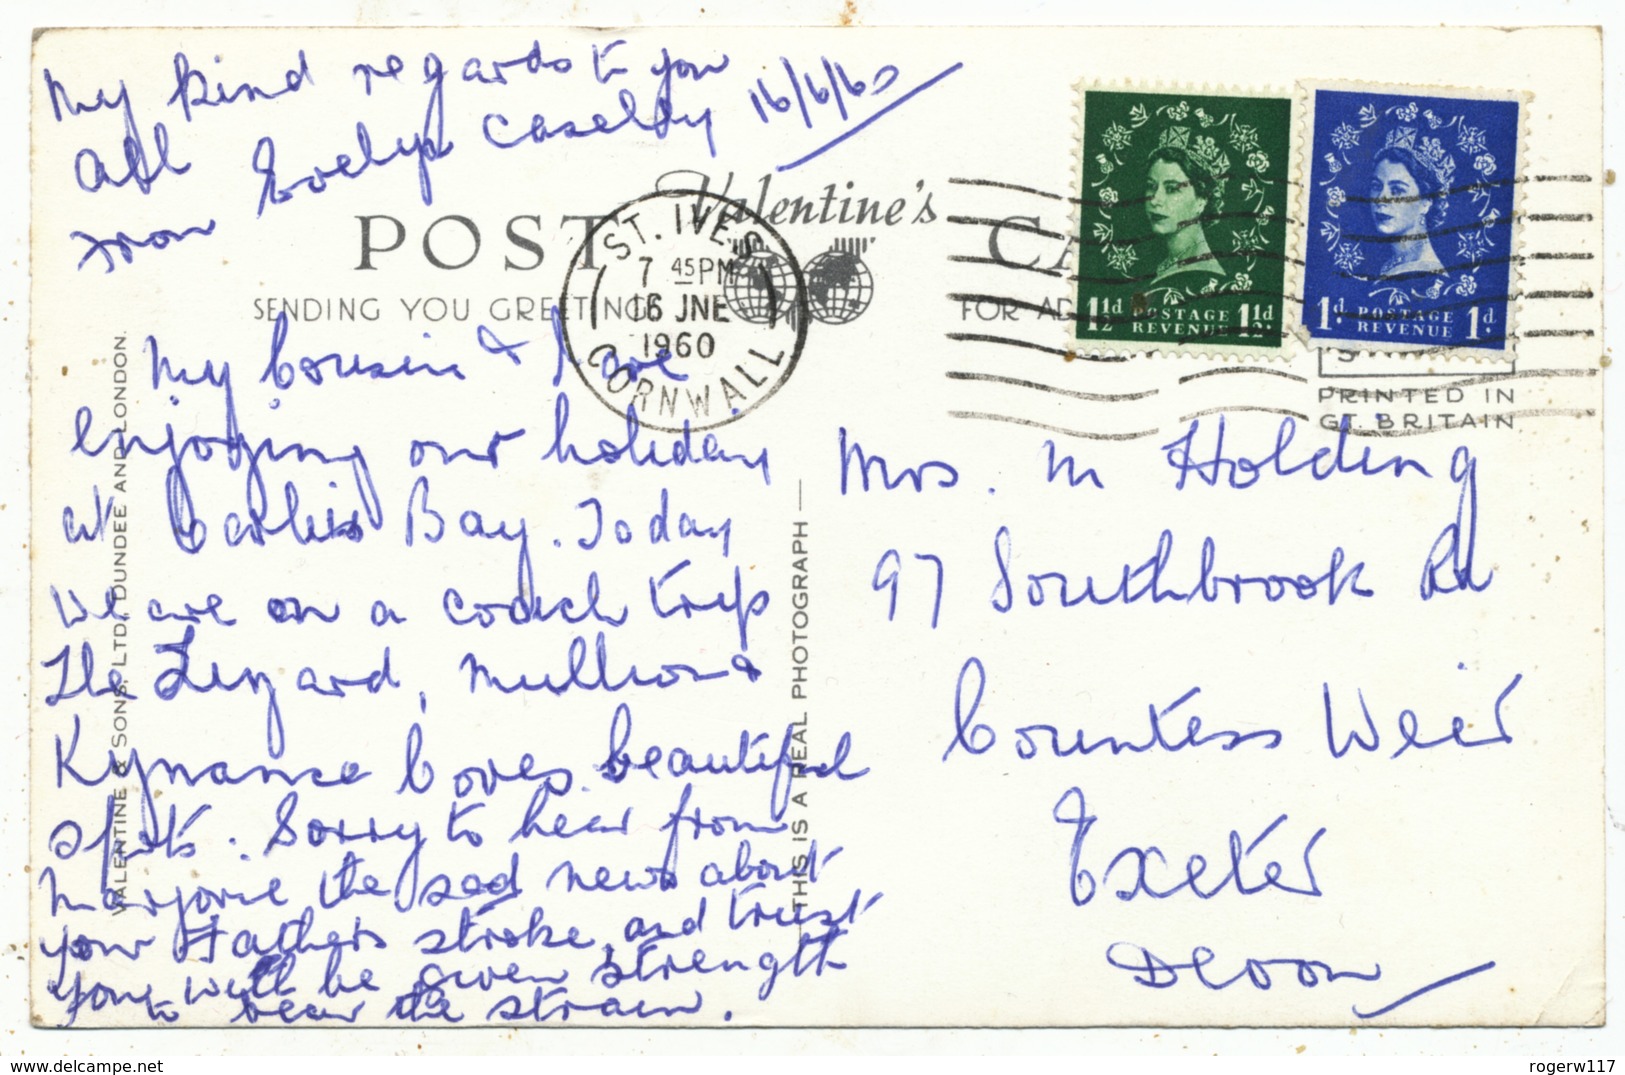 My kind regards to you
all
from Evelyn Caseldy 16/6/60
Valentine's
POST CA
SENDING YOU GREETING
FOR AD
ST. IVES
7 45 PM
16 JNE
1960
CORNWALL
1½d POSTAGE REVENUE 1½d
1d. POSTAGE REVENUE 1d.
PRINTED IN
GT. BRITAIN
My Cousin & I are
enjoying our holiday
at Carbis Bay. Today
we are on a coach trip
The Lizard, Mullion &
Kynance Coves beautiful
spots. Sorry to hear from
Marjorie the sad news about
your Fathers stroke, and trust
you will be given strength
to bear the strain.
Mrs. M Holding
97 Southbrook Rd
Countess Weir
Exeter
Devon
VALENTINE & SONS, LTD, DUNDEE AND LONDON.
THIS IS A REAL PHOTOGRAPH
rogerw117